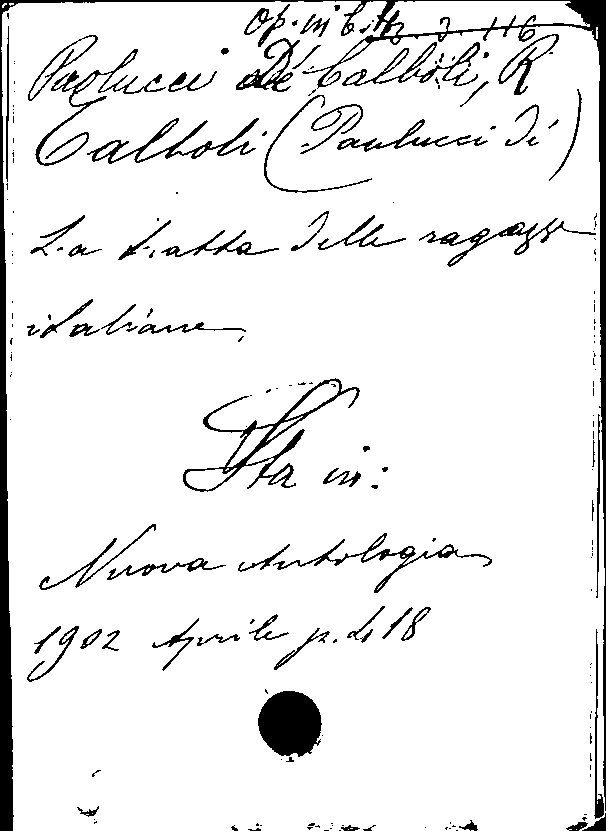 Op. in
Paolucci De Calboli, R
Calboli (Paulucci di)
La tratta delle ragazze
italiane
Sta in:
Nuova Antologia
1902 Aprile p. 418